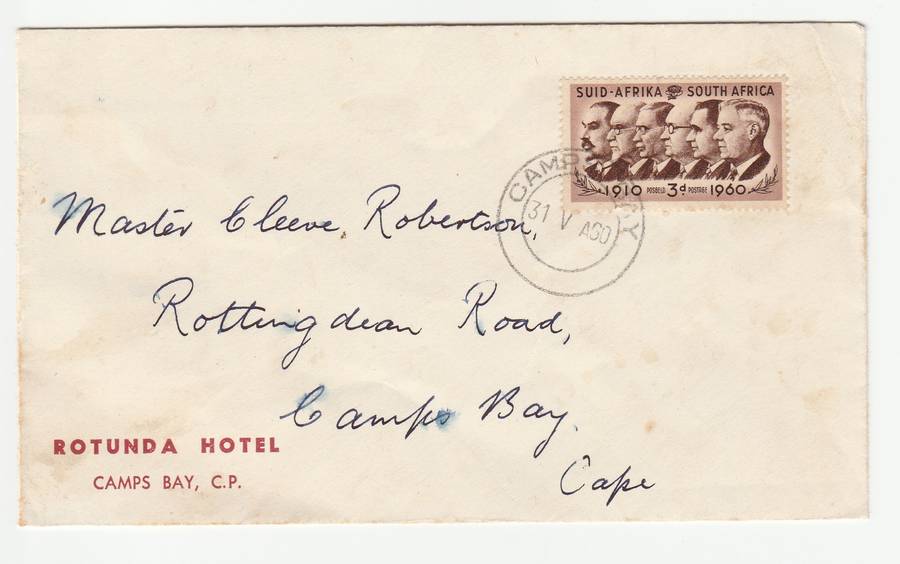 SUID-AFRIKA SOUTH AFRICA
1910 POSBELD 3d POSTAGE 1960
CAMPS BAY
31 V A60
Master Cleeve Robertson,
Rottingdean Road,
Camps Bay.
Cape
ROTUNDA HOTEL
CAMPS BAY, C.P.